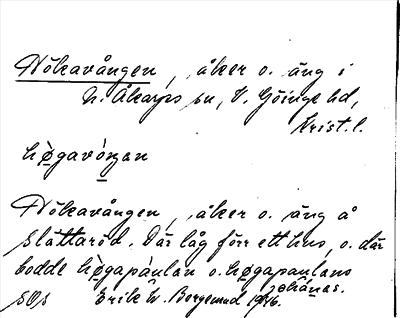 Hökavången, åker o. äng i
N. Åkarps sn, V. Göinge hd,
Krist. l.
hø̱gavóṉan
Hökavången, åker o. äng å
Slättaröd. Där låg förr ett hus, o. där
bodde hø̱gapáulan o. hø̱gapaulans
johánas.
SOS Erik W. Borgemud 1946.